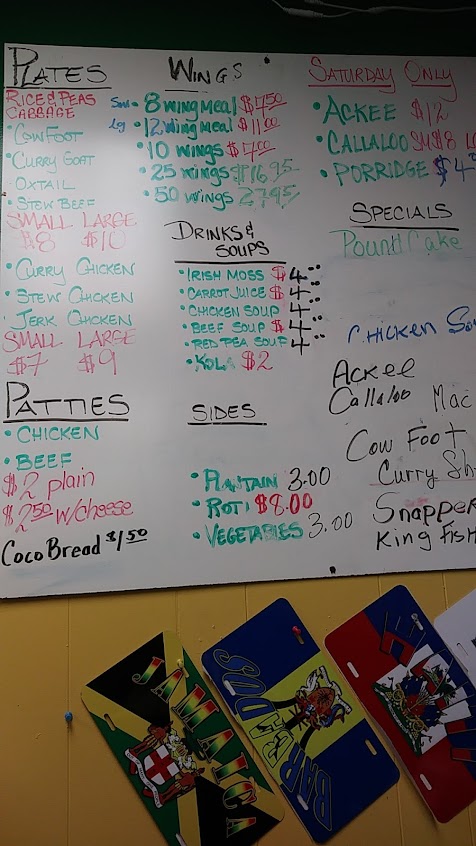 PLATES
RICE & PEAS
CABBAGE
• COW FOOT
• CURRY GOAT
OXTAIL
• STEW BEEF
SMALL LARGE
$8 $10
• CURRY CHICKEN
• STEW CHICKEN
JERK CHICKEN
SMALL LARGE
$7 $9
PATTIES
• CHICKEN
• BEEF
$2 plain
$2.50 w/cheese
Coco Bread $1.50
WINGS
Sm • 8 wing meal $7.50
Lg • 12 wing meal $11.00
• 10 wings $7.00
• 25 wings $16.95
• 50 wings 27.95
DRINKS &
SOUPS
• IRISH MOSS $4
• CARROT JUICE $4
• CHICKEN SOUP 4
• BEEF SOUP $4
• RED PEA SOUP 4
• KOLA $2
SIDES
• PLANTAIN 3.00
• ROTI $8.00
• VEGETABLES 3.00
SATURDAY ONLY
• ACKEE $12
• CALLALOO SM $8
• PORRIDGE $4
SPECIALS
Pound Cake
CHICKEN
Ackee
Callaloo Mac
Cow Foot
Curry
Snapper
King Fish
JAMAICA
BARBADOS